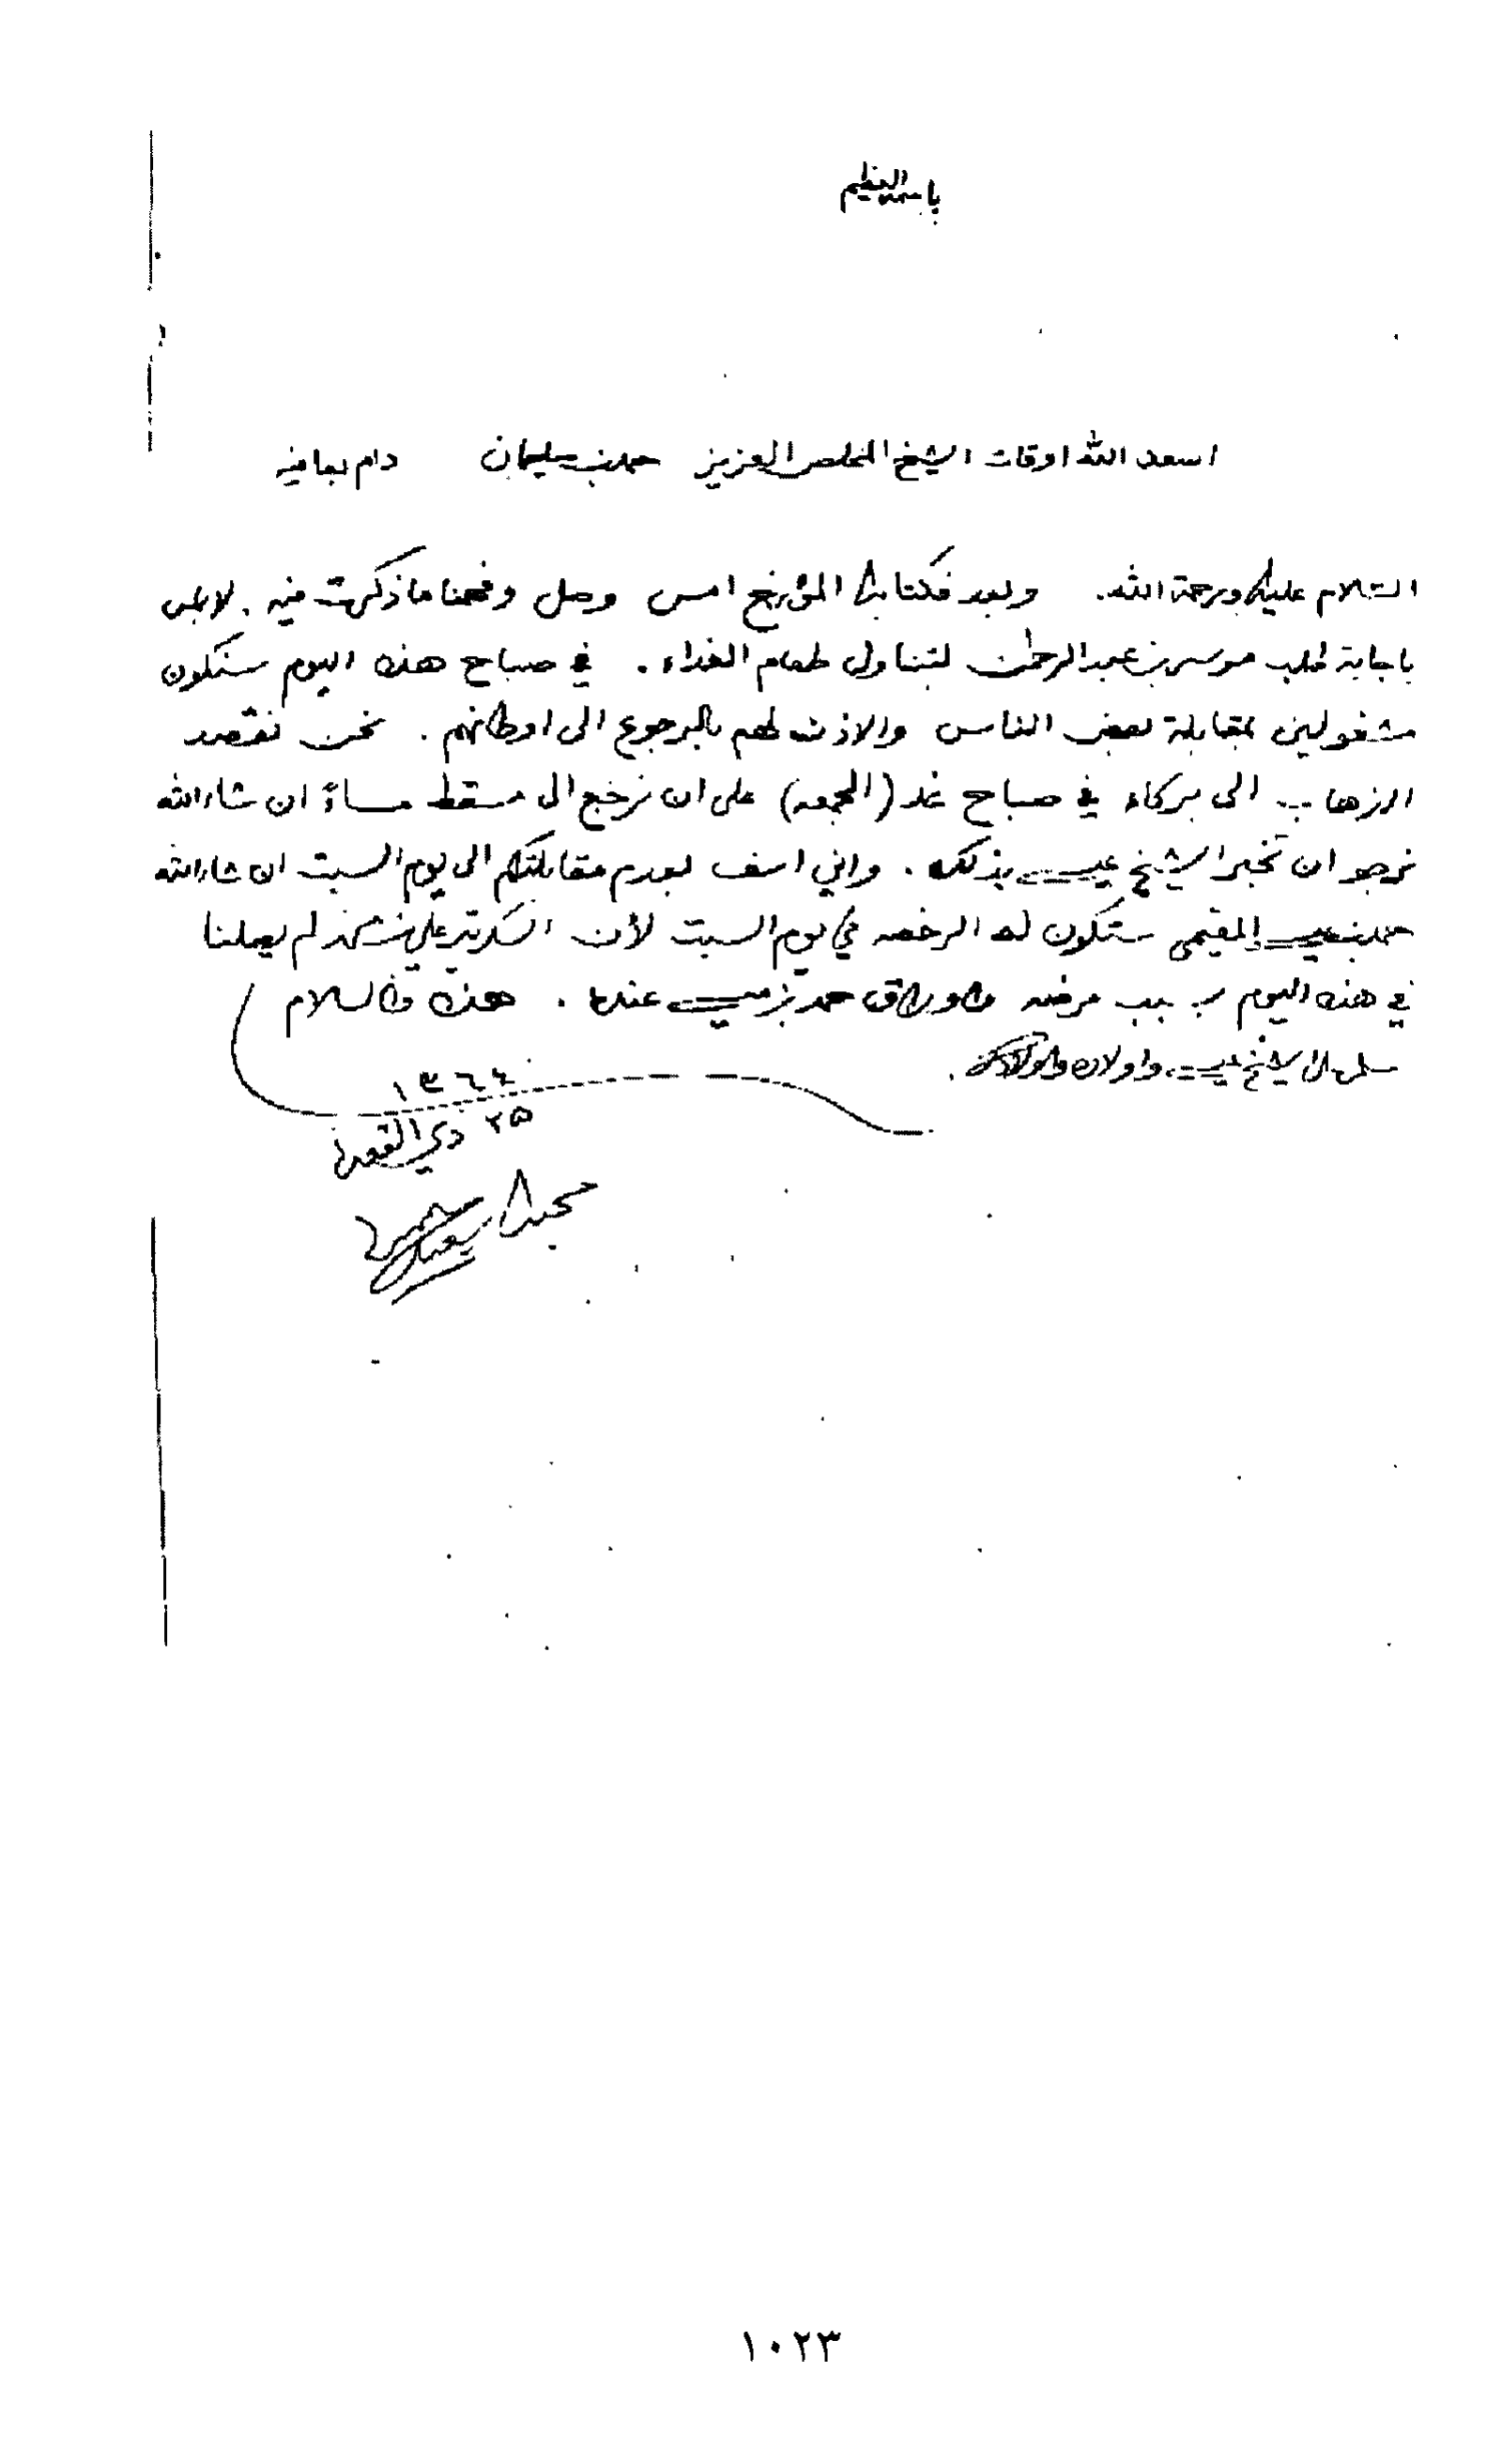 باسمه العظيم
اسعد الله اوقات الشيخ المخلص العزيز حمد بن سليمان دام بعافيه
السلام عليك ورحمة الله. وبعد فكتابك المؤرخ امس وصل وفهمنا ما ذكرت فيه. لا باس
باجابة طلب موسى بن عبدالرحمن لتناول طعام الغداء. في صباح هذه اليوم سنكون
مشغولين بمقابلة بعض الناس والاذن لهم بالرجوع الى اوطانهم. نحن نقصد
الذهاب الى بركاء في صباح غد (الجمعه) على ان نرجع الى مسقط مساءً ان شاء الله
نرجو ان تخبر الشيخ عيسى بذلك. واني اسف لعدم مقابلتكم الى يوم السبت ان شاء الله
حمد بن عيسى المقيمى ستكون له الرخصه في يوم السبت لأن السكرتير علي بن لم يصلنا
في هذه اليوم بسبب مرضه واوراق حمد بن عيسى عنده. هذه والسلام
سلم لنا الشيخ عيسى واولاده واولادك.
١٣٦٤
٢٥ ذي القعده
محبك
١٠٢٣